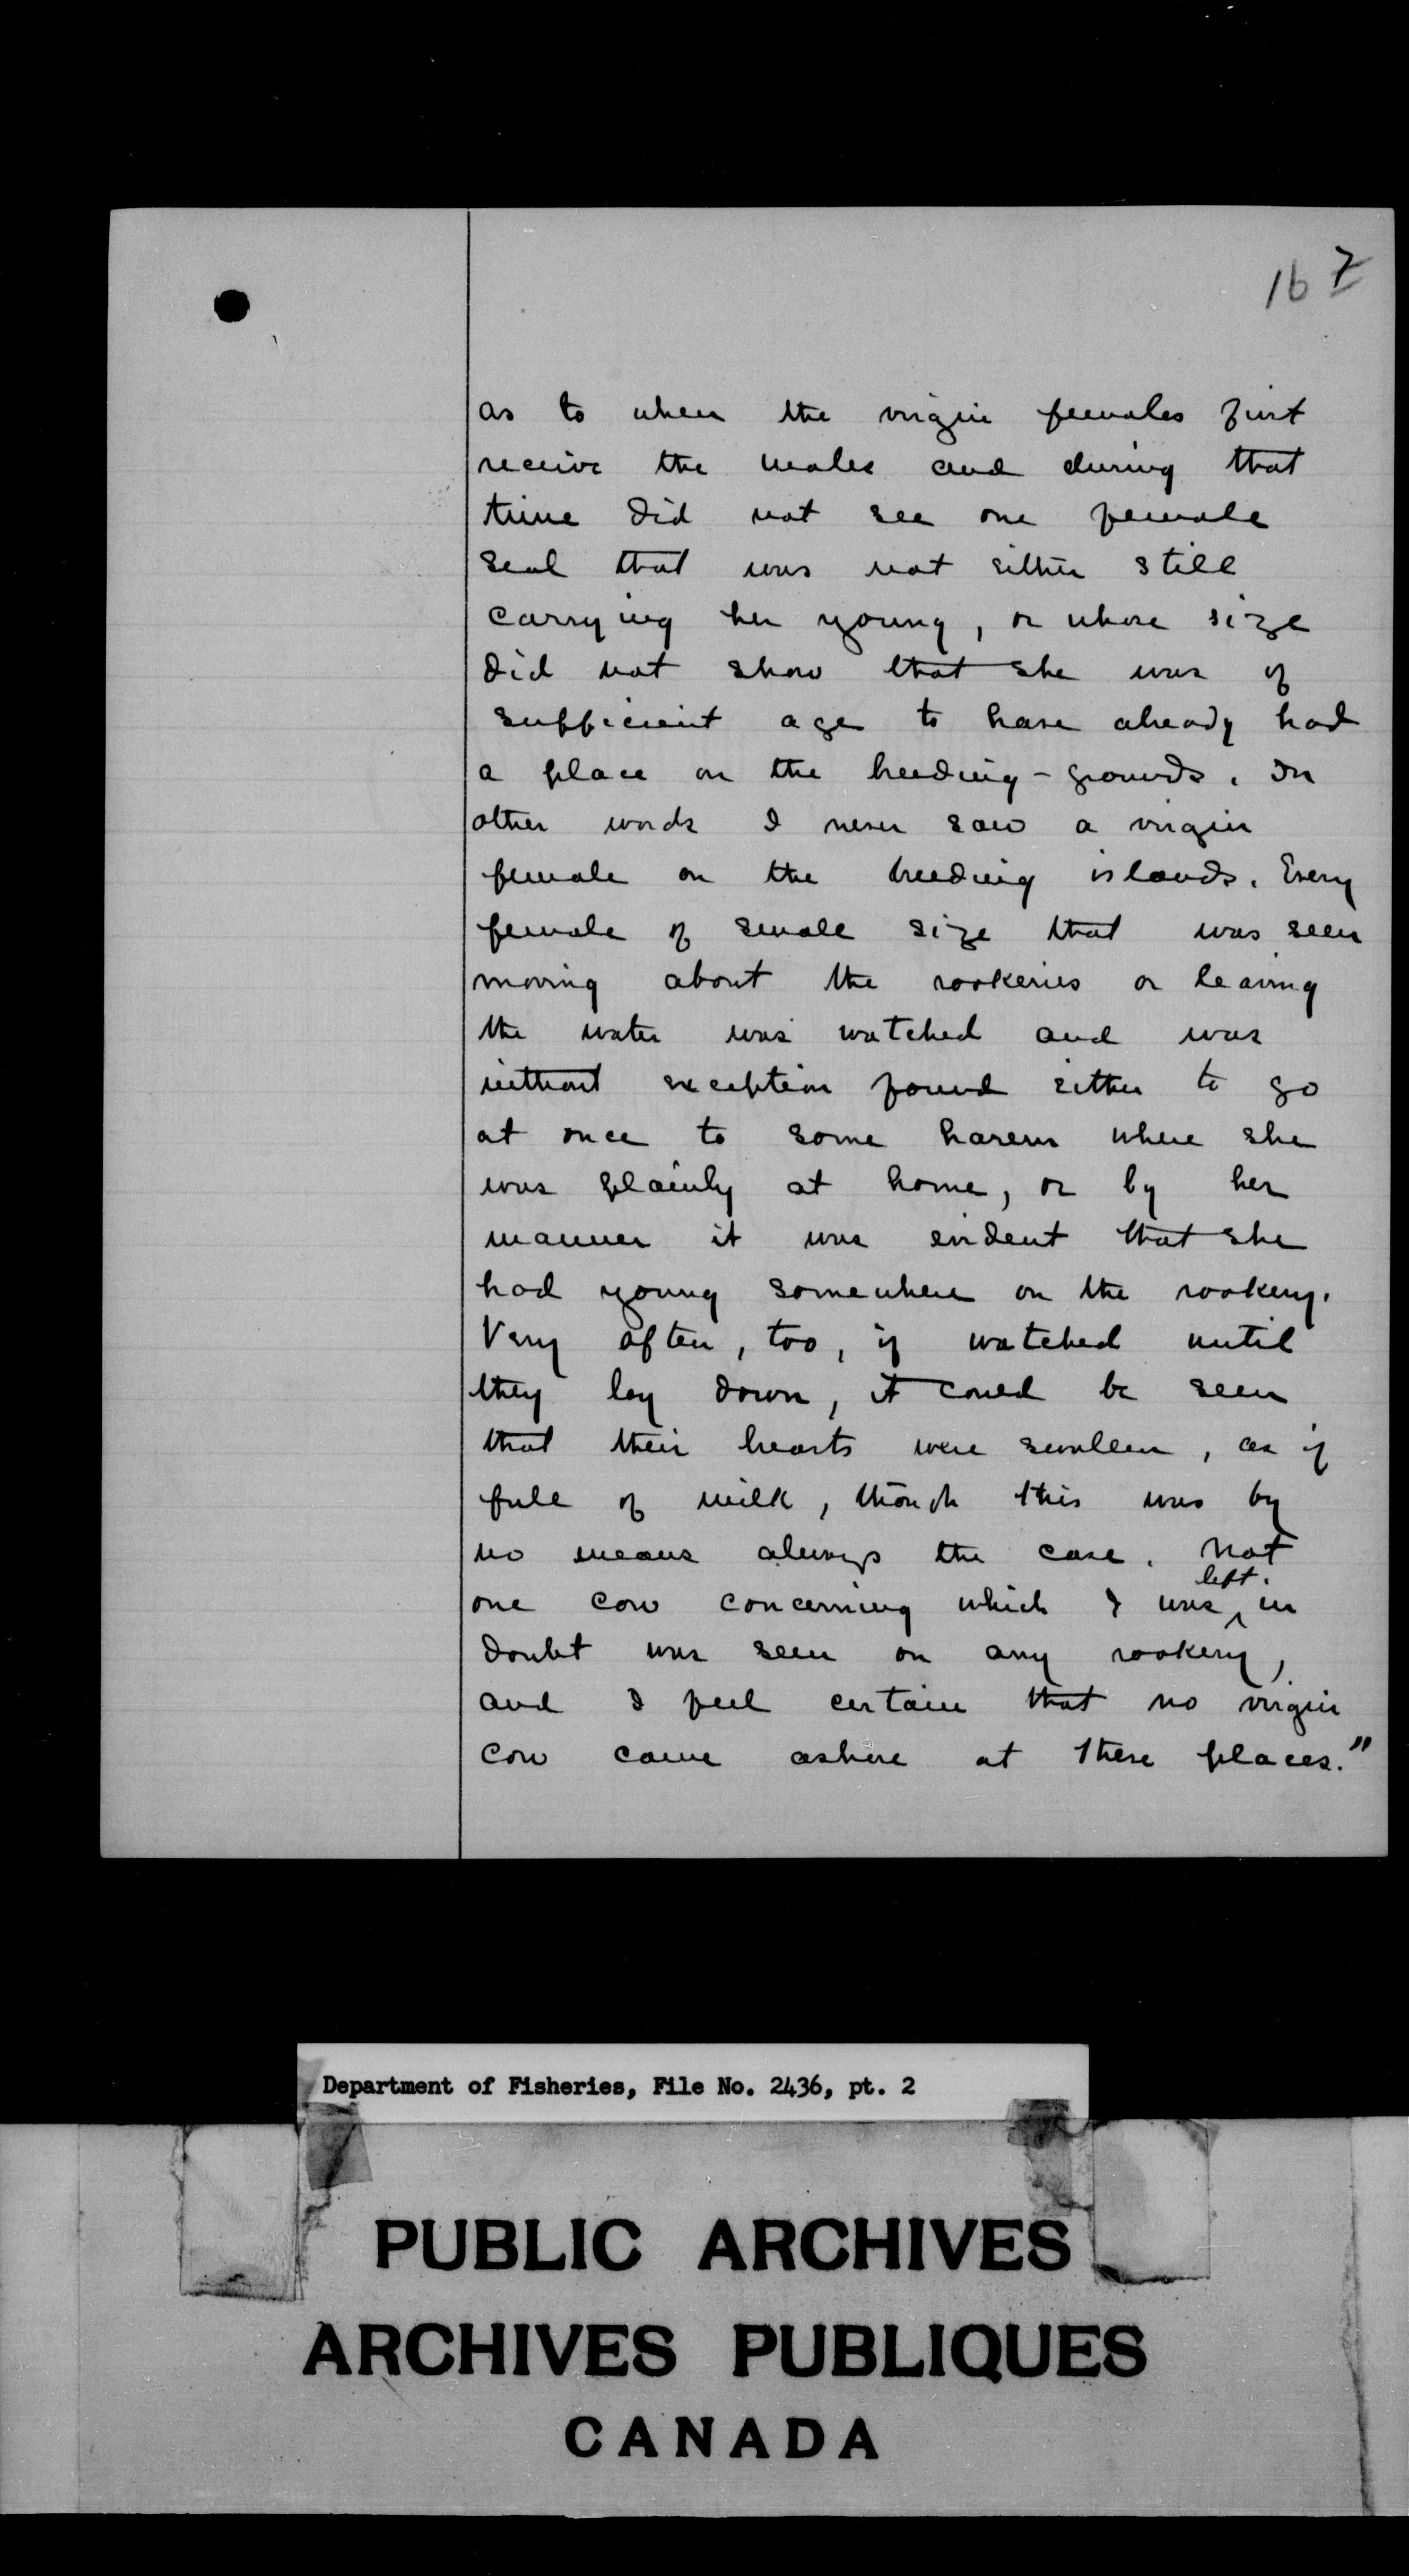 167
as to when the virgin females first
receive the males and during that
time did not see one female
seal that was not either still
carrying her young, or whose size
did not show that she was of
sufficient age to have already had
a place on the breeding-grounds. In
other words I never saw a virgin
female on the breeding islands. Every
female of small size that was seen
moving about the rookeries or leaving
the water was watched and was
without exception found either to go
at once to some harem where she
was plainly at home, or by her
manner it was evident that she
had young somewhere on the rookery.
Very often, too, if watched until
they lay down, it could be seen
that their breasts were swollen, as if
full of milk, though this was by
no means always the case. Not
one cow concerning which I was left in
doubt was seen on any rookery,
and I feel certain that no virgin
cow came ashore at these places."
Department of Fisheries, File No. 2436, pt. 2
PUBLIC ARCHIVES
ARCHIVES PUBLIQUES
CANADA